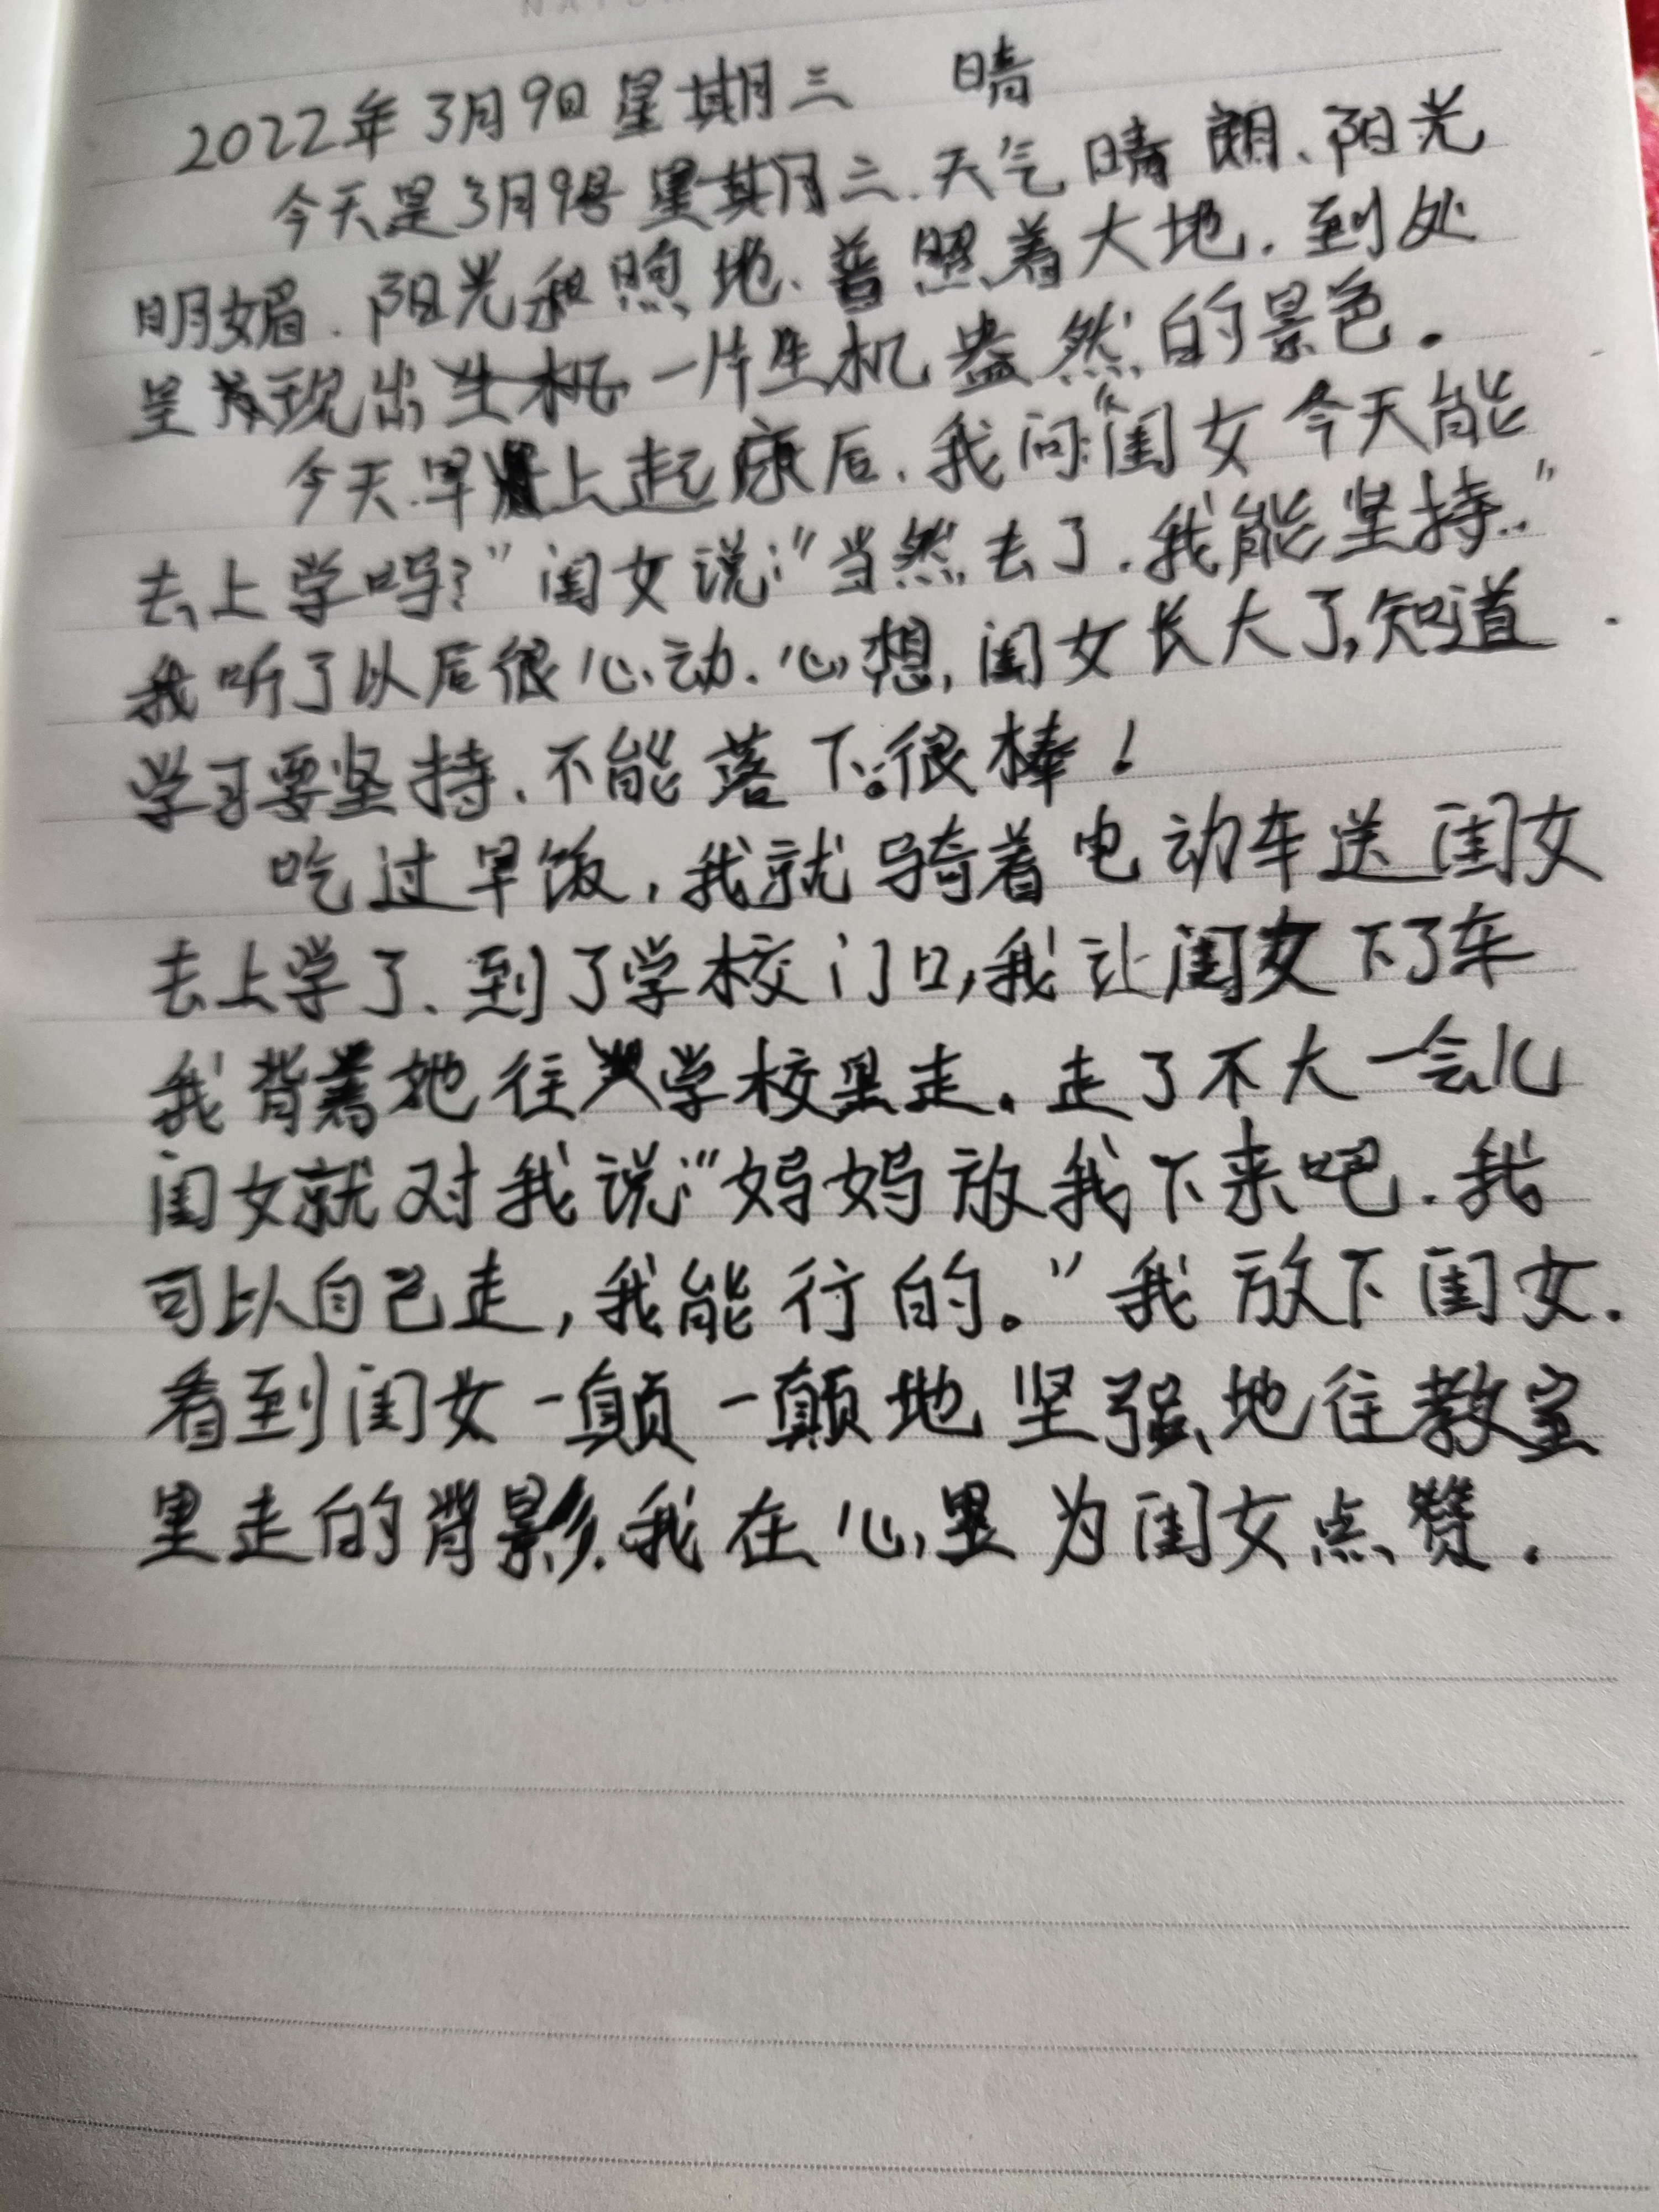 2022年3月9日星期三 晴
今天是3月9号星期三.天气晴朗、阳光
明媚.阳光和煦地、普照着大地.到处
呈现出生机一片生机盎然的景色.
今天早上起床后.我问:"闺女今天能
去上学吗?"闺女说:"当然去了.我能坚持."
我听了以后很心动.心想,闺女长大了,知道
学习要坚持、不能落下。很棒!
吃过早饭,我就骑着电动车送闺女
去上学了、到了学校门口,我让闺女下了车
我背着她往学校里走.走了不大一会儿
闺女就对我说:"妈妈放我下来吧.我
可以自己走,我能行的。"我放下闺女.
看到闺女一颠一颠地坚强地往教室
里走的背影.我在心里为闺女点赞.